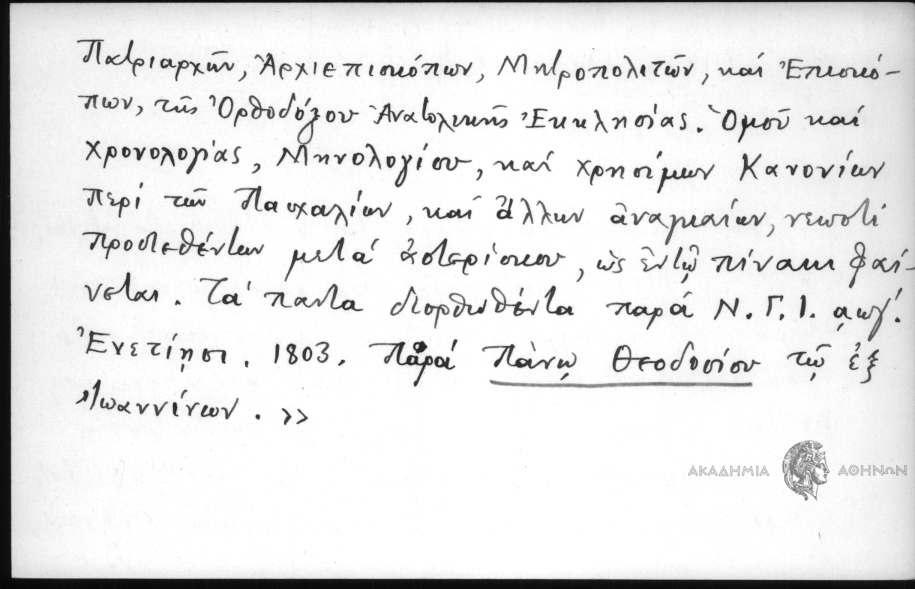 Πατριαρχῶν, Ἀρχιεπισκόπων, Μητροπολιτῶν, καί Ἐπισκό-
πων, τῆς Ὀρθοδόξου Ἀνατολικῆς Ἐκκλησίας. Ὁμοῦ καί
χρονολογίας, Μηνολογίου, καί χρησίμων Κανονίων
περί τῶν Πασχαλίων, καί ἄλλων ἀναγκαίων, νεωστί
προστεθέντων μετά ἀστερίσκου, ὡς ἐντῷ πίνακι φαί-
νεται. Τά παντα διορθωθέντα παρά Ν. Γ. Ι. αωγ΄.
Ἐνετίῃσι. 1803. Παρά Πάνῳ Θεοδοσίου τῷ ἐξ
Ἰωαννίνων. »
ΑΚΑΔΗΜΙΑ ΑΘΗΝΩΝ